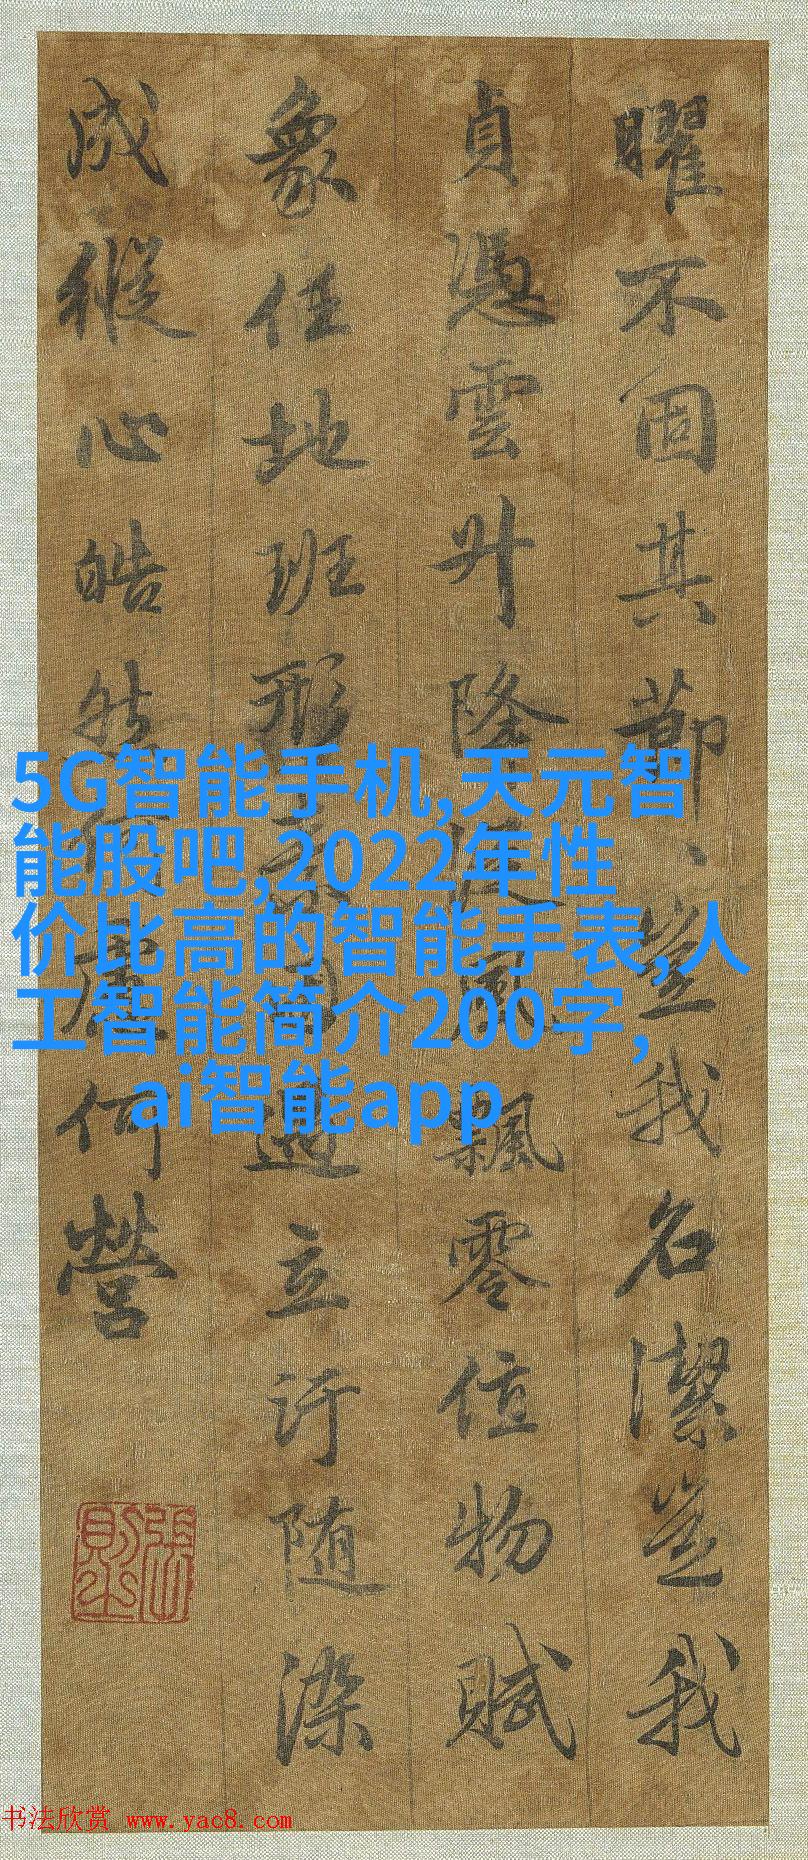 曜不固其節、豈我名潔豈我
貞憑雲升降從風飄零值物賦
象任地班形素因遇立汙随染
成縱心皓然何慮何營
張則之
5G智能手机,天元智
能股吧,2022年性
价比高的智能手表,人
工智能简介200字,
ai智能app
书法欣赏 www.yac8.com